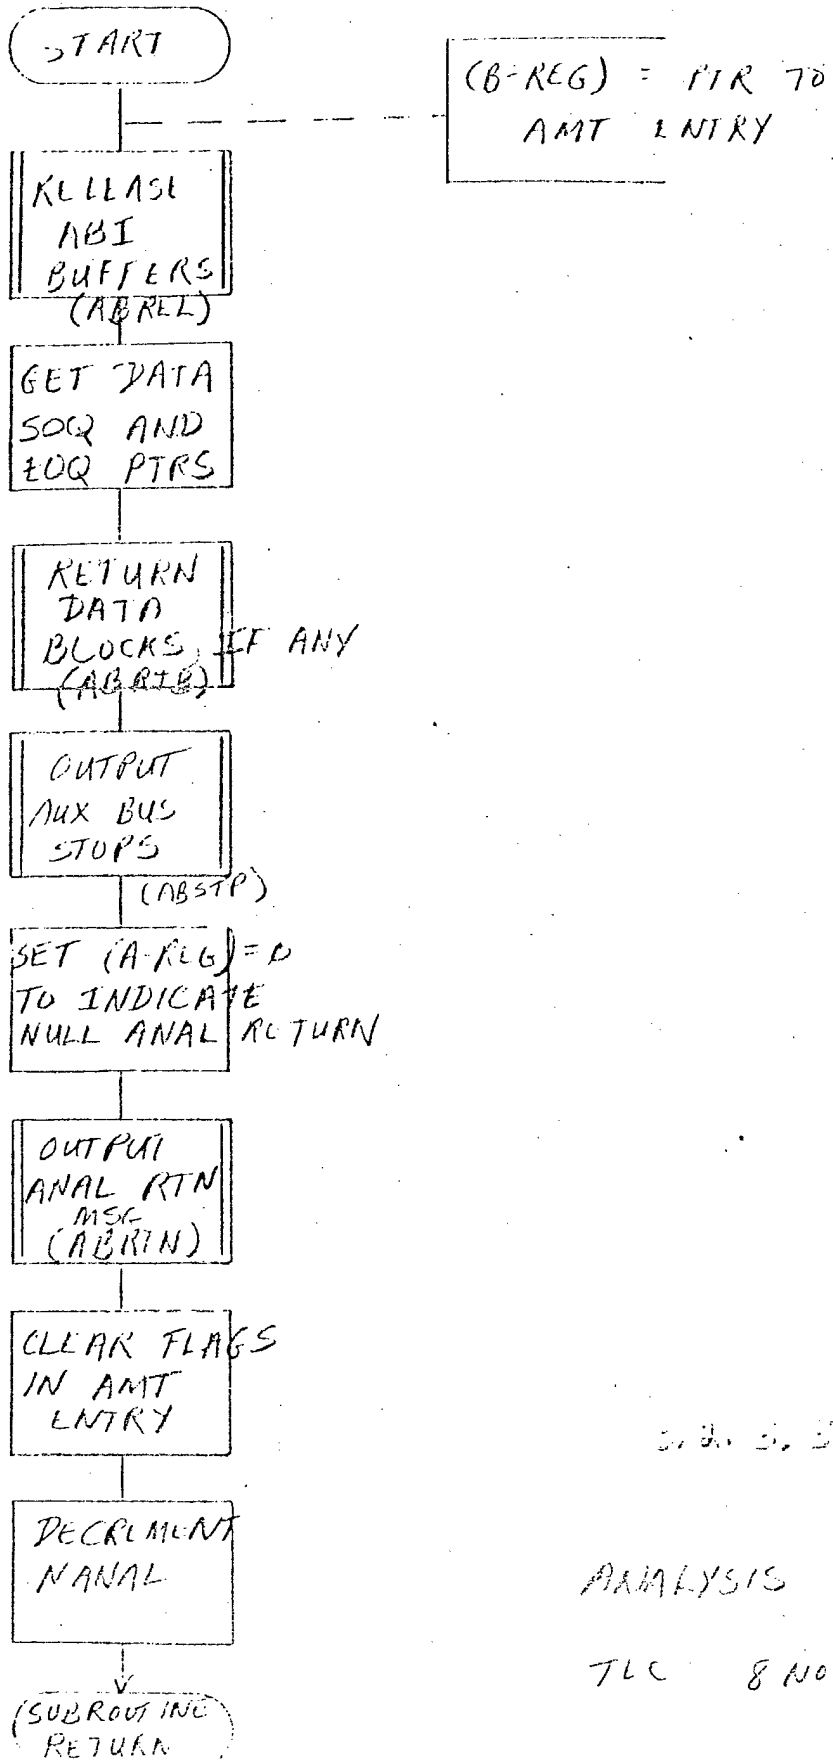 START
(B-REG) = PTR TO
AMT ENTRY
RELEASE
ABI
BUFFERS
(ABREL)
GET DATA
SOQ AND
EOQ PTRS
RETURN
DATA
BLOCKS, IF ANY
(ABRIB)
OUTPUT
AUX BUS
STOPS
(ABSTP)
SET (A-REG)=0
TO INDICATE
NULL ANAL RETURN
OUTPUT
ANAL RTN
MSG
(ABRTN)
CLEAR FLAGS
IN AMT
ENTRY
DECREMENT
NANAL
ANALYSIS
TLC 8 NO
(SUBROUTINE
RETURN